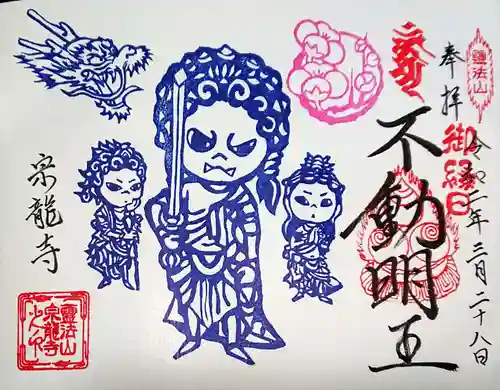 奉拝
令和二年三月二十八日
霊法山
御縁日
不動明王
宗龍寺
霊法山
宗龍寺